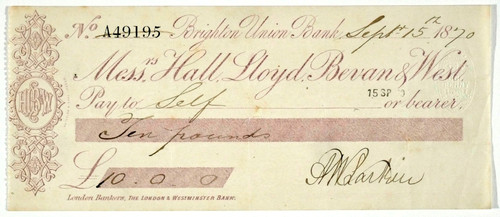 No. A49195 Brighton Union Bank, Septr. 15th 1870
Messrs Hall, Lloyd, Bevan & West
Pay to Self or bearer.
15 SP 0
Ten pounds
£10. 0. 0
London Bankers, The London & Westminster Bank.
HLBW